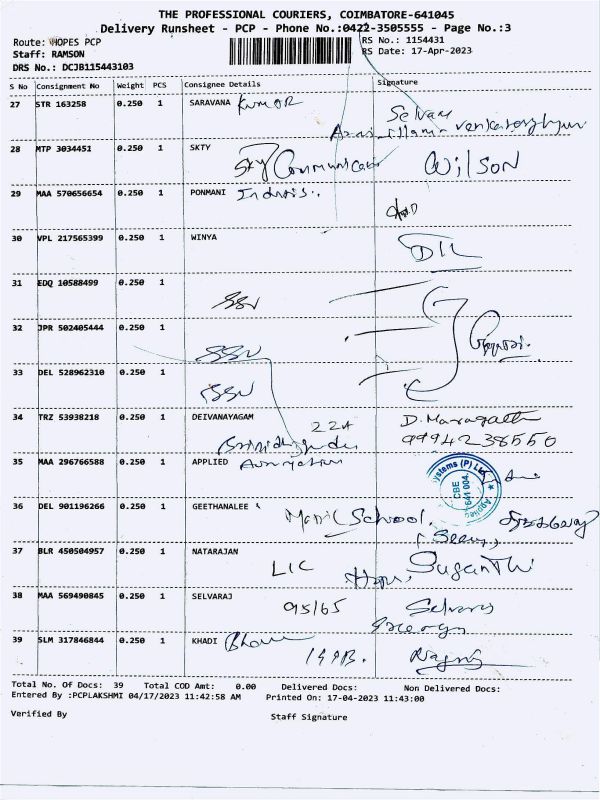 THE PROFESSIONAL COURIERS, COIMBATORE-641045
Delivery Runsheet - PCP - Phone No.:0422-3505555 - Page No.:3
Route: HOPES PCP
RS No.: 1154431
Staff: RAMSON
RS Date: 17-Apr-2023
DRS No.: DCJB115443103
S No Consignment No Weight PCS Consignee Details Signature
27 STR 163258 0.250 1 SARAVANA Kumar Selvam
28 MTP 3034451 0.250 1 SKTY
SKY Communication Wilson
29 MAA 570656654 0.250 1 PONMANI
30 VPL 217565399 0.250 1 WINYA
31 EDQ 10588499 0.250 1
SSV
32 JPR 502405444 0.250 1
SSV
33 DEL 528962310 0.250 1
SSV
34 TRZ 53938218 0.250 1 DEIVANAYAGAM D. Maragatha
22A 9994238550
35 MAA 296766588 0.250 1 APPLIED
ystems (P) Ltd
CBE
641 004
36 DEL 901196266 0.250 1 GEETHANALEE
School
37 BLR 450504957 0.250 1 NATARAJAN
LIC Suganthi
38 MAA 569490845 0.250 1 SELVARAJ
95/65 Selvaraj
39 SLM 317846844 0.250 1 KHADI
Total No. Of Docs: 39 Total COD Amt: 0.00 Delivered Docs: Non Delivered Docs:
Entered By :PCPLAKSHMI 04/17/2023 11:42:58 AM Printed On: 17-04-2023 11:43:00
Verified By Staff Signature